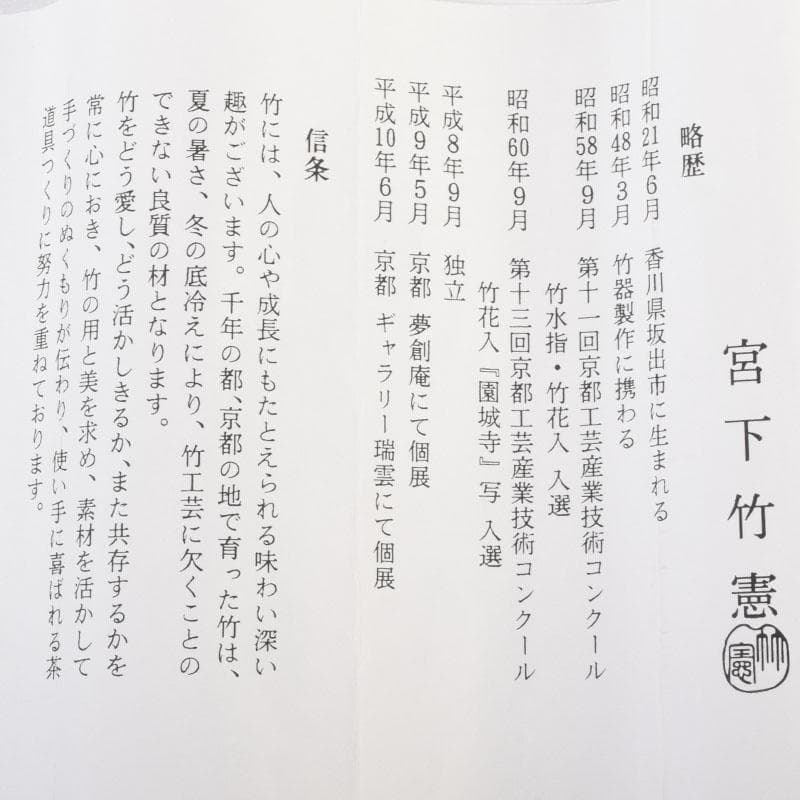 宮下竹憲
竹憲
略歴
昭和21年6月 香川県坂出市に生まれる
昭和48年3月 竹器製作に携わる
昭和58年9月 第十一回京都工芸産業技術コンクール
竹水指・竹花入 入選
昭和60年9月 第十三回京都工芸産業技術コンクール
竹花入『園城寺』写 入選
平成8年9月 独立
平成9年5月 京都 夢創庵にて個展
平成10年6月 京都 ギャラリー瑞雲にて個展
信条
竹には、人の心や成長にもたとえられる味わい深い
趣がございます。千年の都、京都の地で育った竹は、
夏の暑さ、冬の底冷えにより、竹工芸に欠くことの
できない良質の材となります。
竹をどう愛し、どう活かしきるか、また共存するかを
常に心におき、竹の用と美を求め、素材を活かして
手づくりのぬくもりが伝わり、使い手に喜ばれる茶
道具つくりに努力を重ねております。